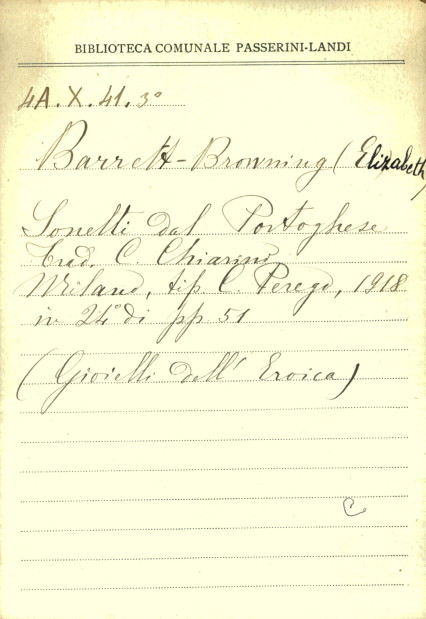 BIBLIOTECA COMUNALE PASSERINI-LANDI
4A. X. 41. 3°
Barrett-Browning (Elizabeth)
Sonetti dal Portoghese
Trad. C. Chiarini
Milano, tip C. Perego, 1918
in 24° di pp 51
(Gioielli dell' Eroica)
C